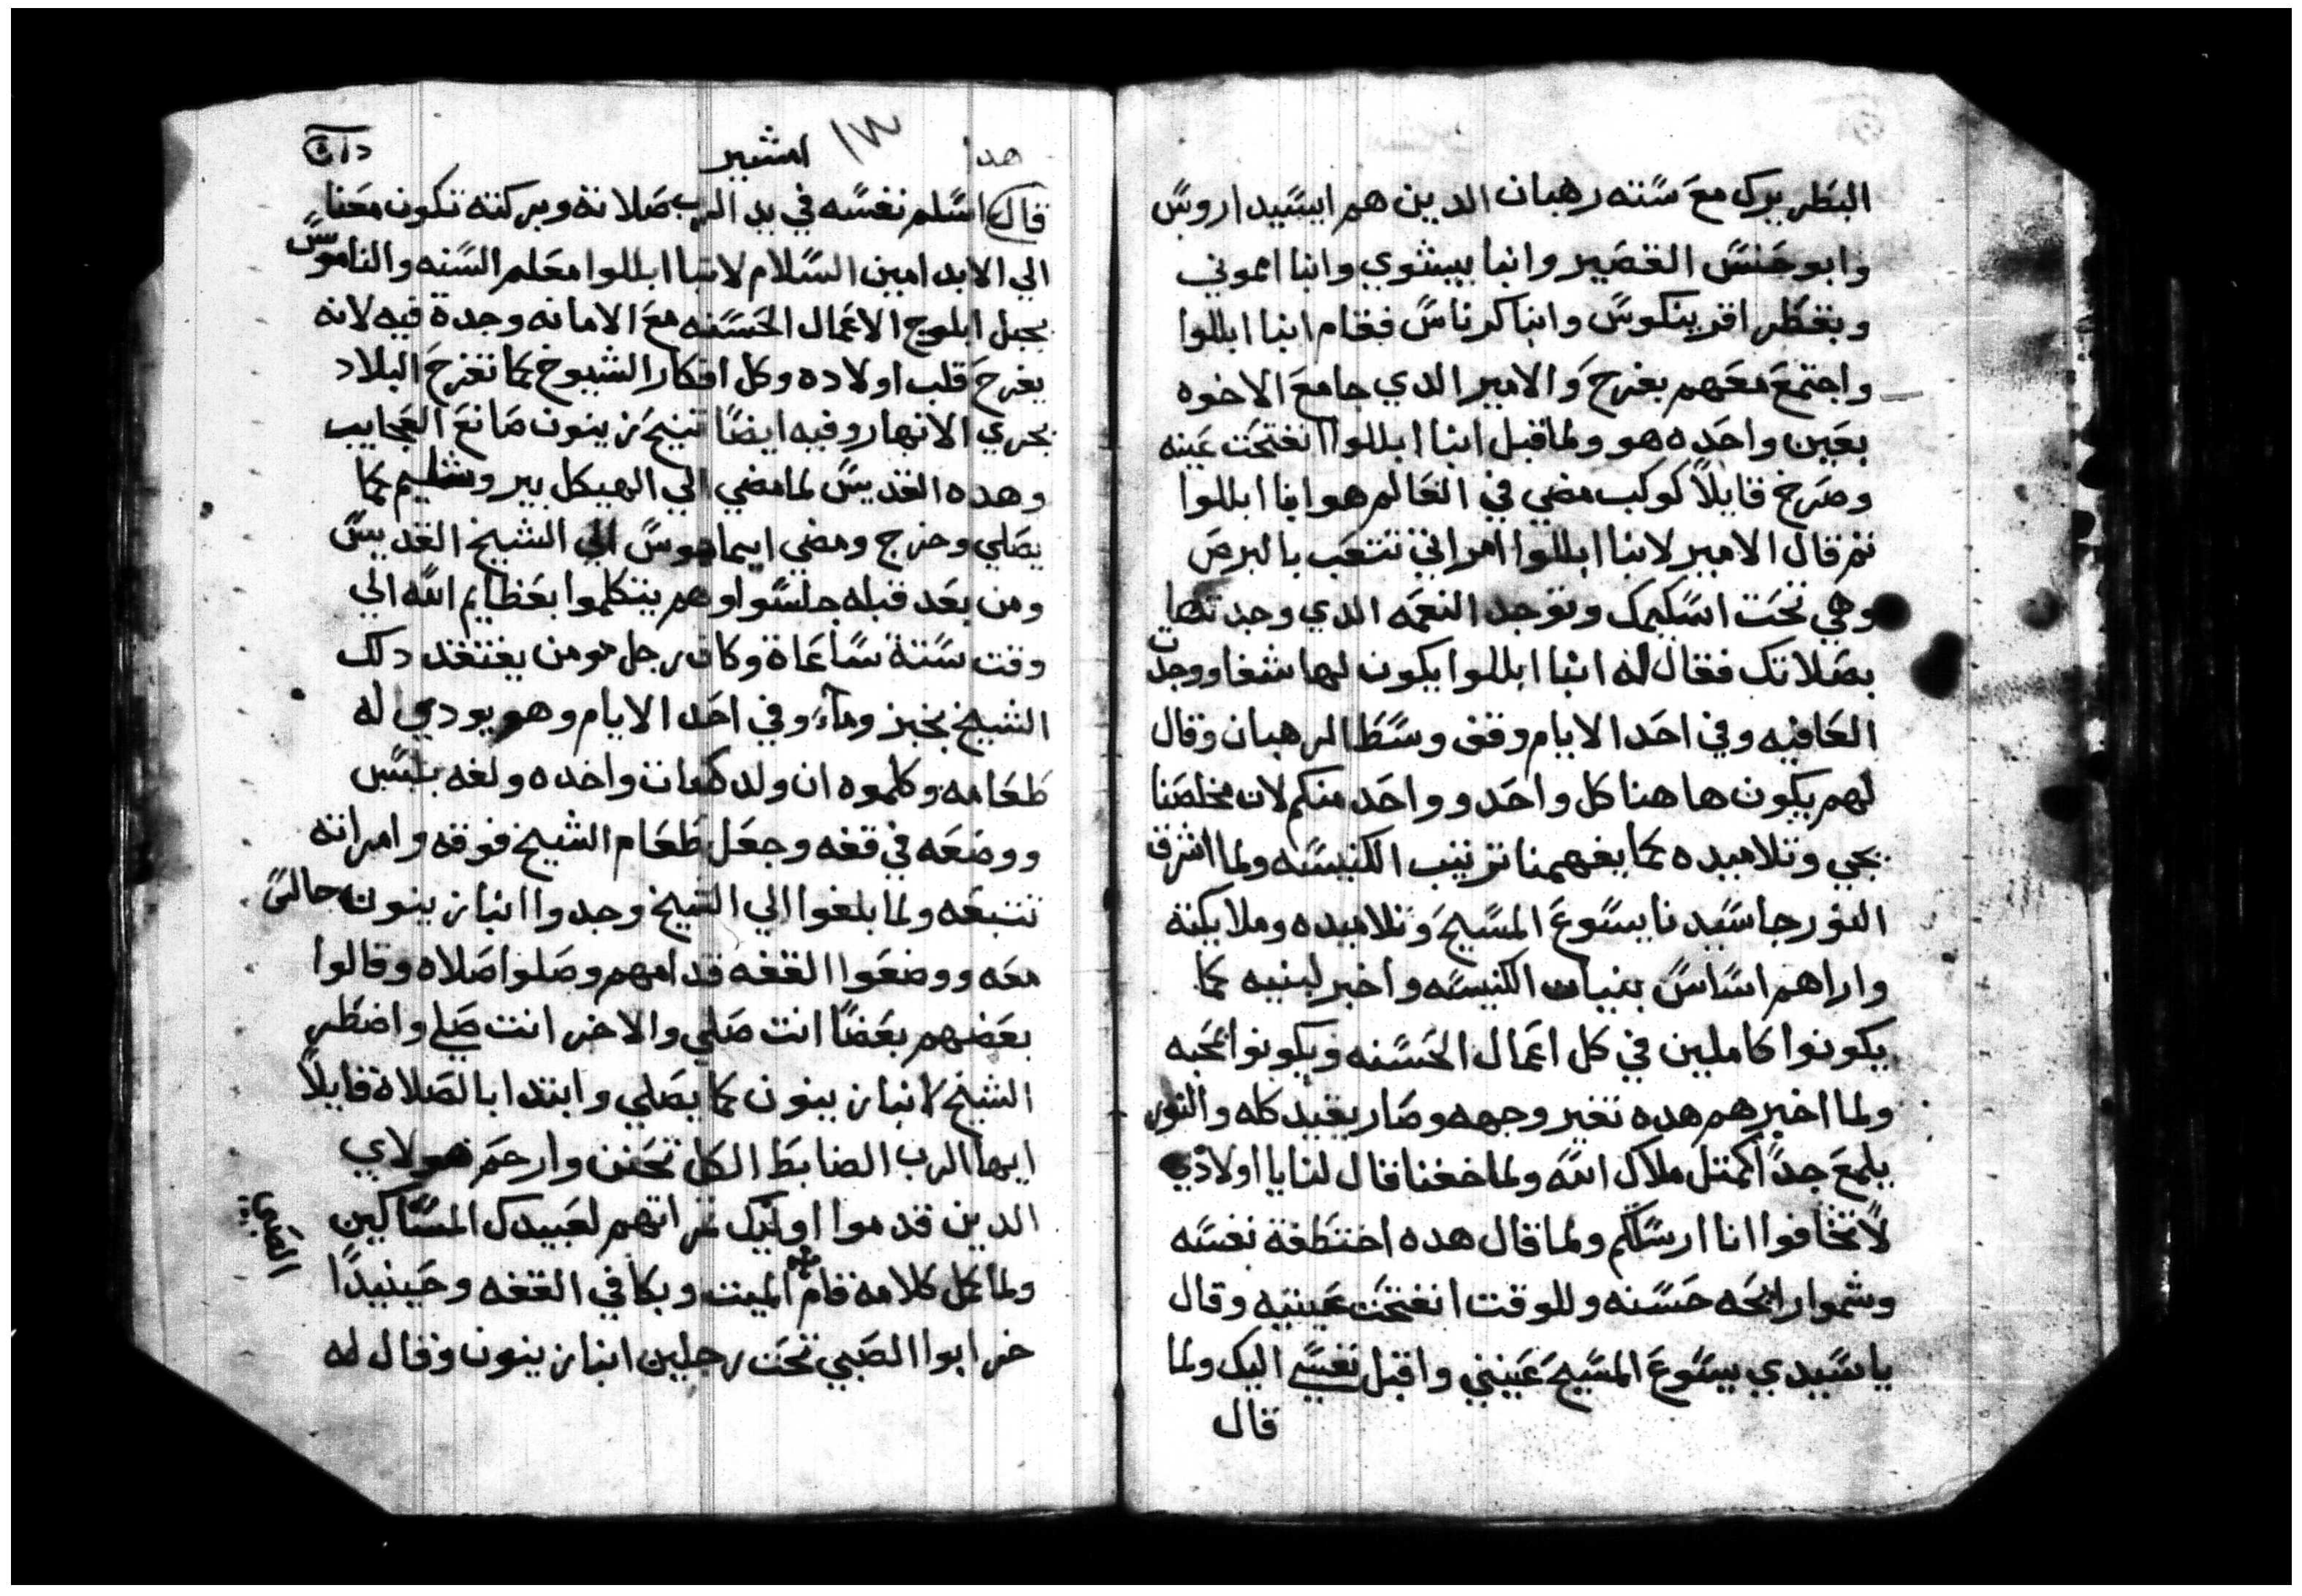 البطريرك مع سته رهبان الدين هم ايسيداروس
وابو حنس القصير وانبا بيشوي وانبا اموني
وبفطر اقرينكوس وانبا كرناس فقام انبا ابللوا
واجتمع معهم بفرح والامير الدي جامع الاخوه
بعين واحده هو ولما قبل انبا ابللوا انفتحت عينه
وصرخ قايلاً كوكب مضي في العالم هو انبا ابللوا
تم قال الامير لانبا ابللوا امراتي تتعب بالبرص
وهي تحت اسكيمك وتوجد النعمه الدي وجدتها
بصلاتك فقال له انبا ابللوا يكون لها شفا ووجدت
العافيه وفي احد الايام وقف وسط الرهبان وقال
لهم يكون هاهنا كل واحد وواحد منكم لان مخلصنا
يجي وتلاميده كما يفهمنا ترتيب الكنيسه ولما اشرق
النور جا سيدنا يسوع المسيح وتلاميده وملايكته
واراهم اساس بنيان الكنيسه واخبر لبنيه كما
يكونوا كاملين في كل اعمال الحسنه ويكونوا بمحبه
ولما اخبرهم هده تغير وجهه وصار يقيد كله والنور
يلمع جداً كمتل ملاك الله ولما خفنا قال لنا يا اولادي
لا تخافوا انا ارسلكم ولما قال هده اختطفة نفسه
وشموا رايحه حسنه وللوقت انفتحت عينيه وقال
يا سيدي يسوع المسيح عينني واقبل نفسي اليك ولما
قال
هدا امشير ١٣
قال اسلم نفسه في يد الرب صلاته وبركته تكون معنا
الي الابد امين السلام لانبا ابللوا معلم السنه والناموس
بجبل ابلوج الاعمال الحسنه مع الامانه وجدة فيه لانه
يفرح قلب اولاده وكل افكار الشيوخ كما تفرح البلاد
بجري الانهار وفيه ايضاً تنيح زينون صانع العجايب
وهده القديس لما مضي الي الهيكل بيروشليم كما
يصلي وخرج ومضي ايماهوس الي الشيخ القديس
ومن بعد قبله جلسوا وهم يتكلموا بعظايم الله الي
وقت ستة ساعاة وكان رجل مومن يفتقد دلك
الشيخ بخبز وماء وفي احد الايام وهو يودي له
طعامه وكلموه ان ولده مات واخده ولفه بلبس
ووضعه في قفه وجعل طعام الشيخ فوقه وامراته
تتبعه ولما بلغوا الي الشيخ وجدوا انبا زينون جالس
معه ووضعوا القفه قدامهم وصلوا صلاه وقالوا
بعضهم بعضاً انت صلي والاخر انت صلي واضطر
الشيخ لانبا زينون كما يصلي وابتدا بالصلاه قايلاً
ايها الرب الضابط الكل تحنن وارحم هولاي
الدين قدموا اوليك تمراتهم لعبيدك المساكين
ولما كمل كلامه قام الصبي الميت وبكا في القفه وحينيداً
خر ابوا الصبي تحت رجلين انبا زينون وقال له